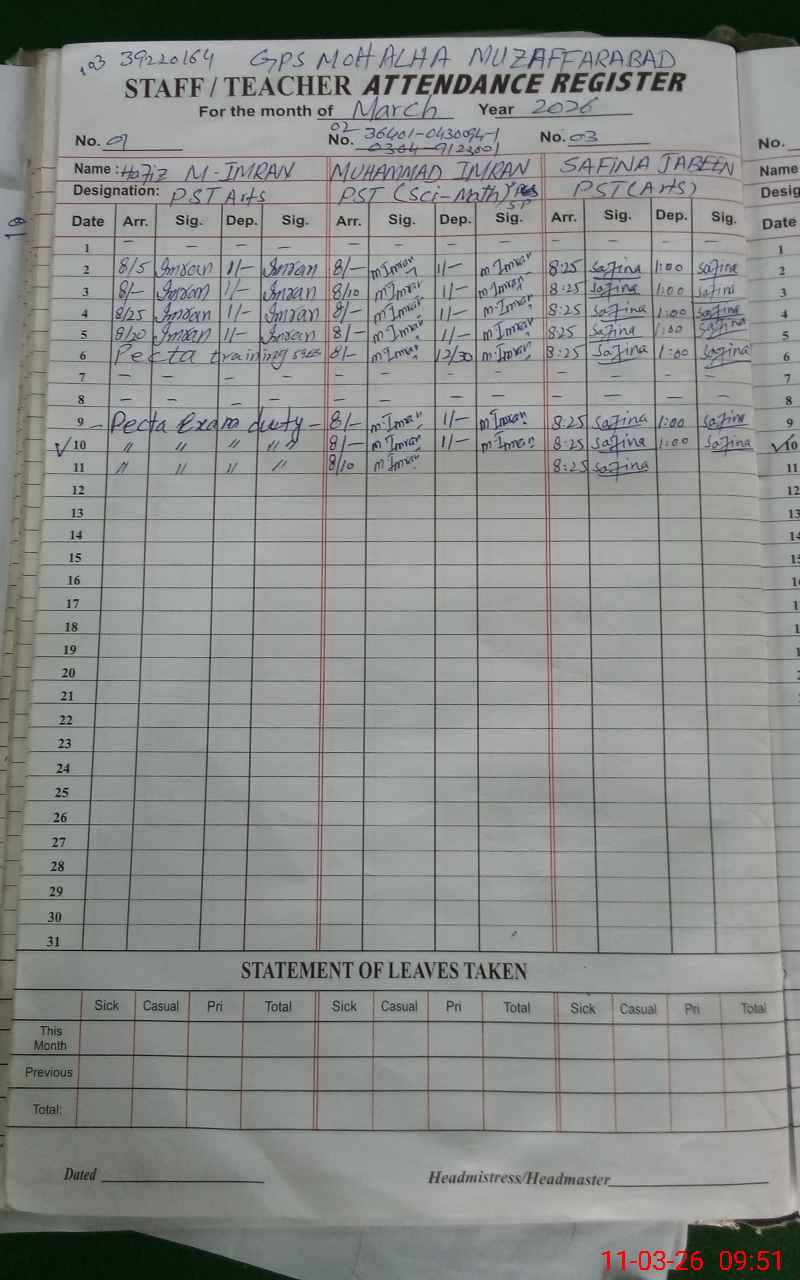 103 39220164 GPS MOHALHA MUZAFFARABAD
STAFF / TEACHER ATTENDANCE REGISTER
For the month of March Year 2026
No. 01 02 No. 36401-0430094-1 No. 03 No.
0304-9123001
Name: Hafiz M-IMRAN MUHAMMAD IMRAN SAFINA JABEEN Name
Designation: PST Arts PST (Sci-Math) PST (Arts) Desig
SP
Date Arr. Sig. Dep. Sig. Arr. Sig. Dep. Sig. Arr. Sig. Dep. Sig. Date
1 – – – – – – – – – – – – 1
2 8/5 Imran 1/– Imran 8/– M Imran 1/– M Imran 8:25 Safina 1:00 Safina 2
3 8/– Imran 1/– Imran 8/10 M Imran 1/– M Imran 8:25 Safina 1:00 Safina 3
4 8/25 Imran 1/– Imran 8/– M Imran 1/– M Imran 8:25 Safina 1:00 Safina 4
5 8/20 Imran 1/– Imran 8/– M Imran 1/– M Imran 8:25 Safina 1:00 Safina 5
6 Pecta training 8/– M Imran 12/30 M Imran 8:25 Safina 1:00 Safina 6
7 – – – – – – – – – – – – 7
8 – – – – – – – – – – – – 8
9 – Pecta Exam duty – 8/– M Imran 1/– M Imran 8:25 Safina 1:00 Safina 9
✓ 10 〃 〃 〃 〃 〃 8/– M Imran 1/– M Imran 8:25 Safina 1:00 Safina ✓ 10
11 〃 〃 〃 〃 8/10 M Imran 8:25 Safina 11
12 12
13 13
14 14
15 15
16
17
18
19
20
21
22
23
24
25
26
27
28
29
30
31
STATEMENT OF LEAVES TAKEN
Sick Casual Pri Total Sick Casual Pri Total Sick Casual Pri Total
This Month
Previous
Total:
Dated Headmistress/Headmaster
11-03-26 09:51